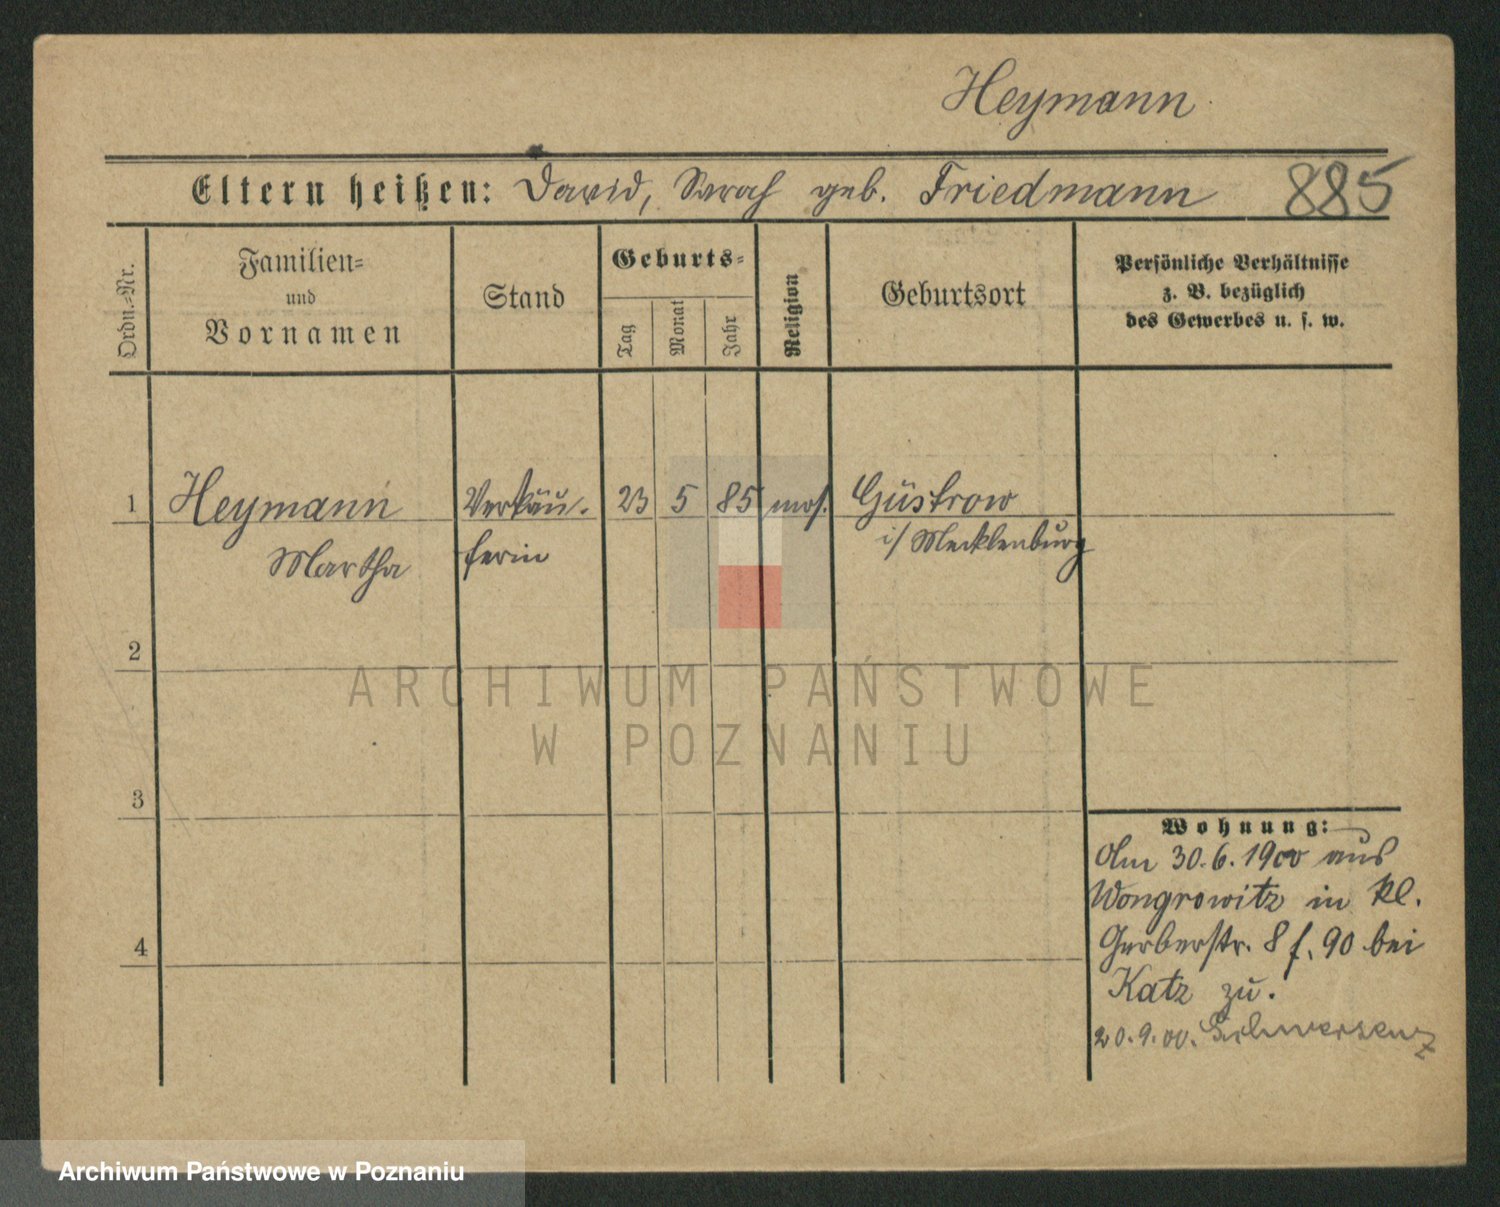 Heymann
Eltern heißen: David, Sarah geb. Friedmann 885
Ordn.=Nr.
Familien=
und
Vornamen
Stand
Geburts=
Tag
Monat
Jahr
Religion
Geburtsort
Persönliche Verhältnisse
z. B. bezüglich
des Gewerbes u. s. w.
1 Heymann Verkäu- 23 5 85 mos. Güstrow
Martha ferin i/ Mecklenburg
2
ARCHIWUM PAŃSTWOWE
W POZNANIU
3
Wohnung:
Am 30.6.1900 aus
Wongrowitz in kl.
Gerberstr. 8 f. 90 bei
4
Katz zu.
20.9.00. Schwersenz
Archiwum Państwowe w Poznaniu